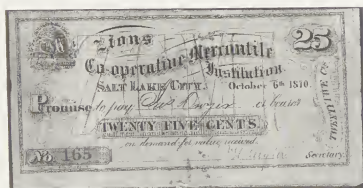 Zions
25
Co-operative Mercantile
Institution.
SALT LAKE CITY. October 6th 1870.
Promise to pay or bearer
TWENTY FIVE CENTS.
on demand for value received
No 165
Secretary.